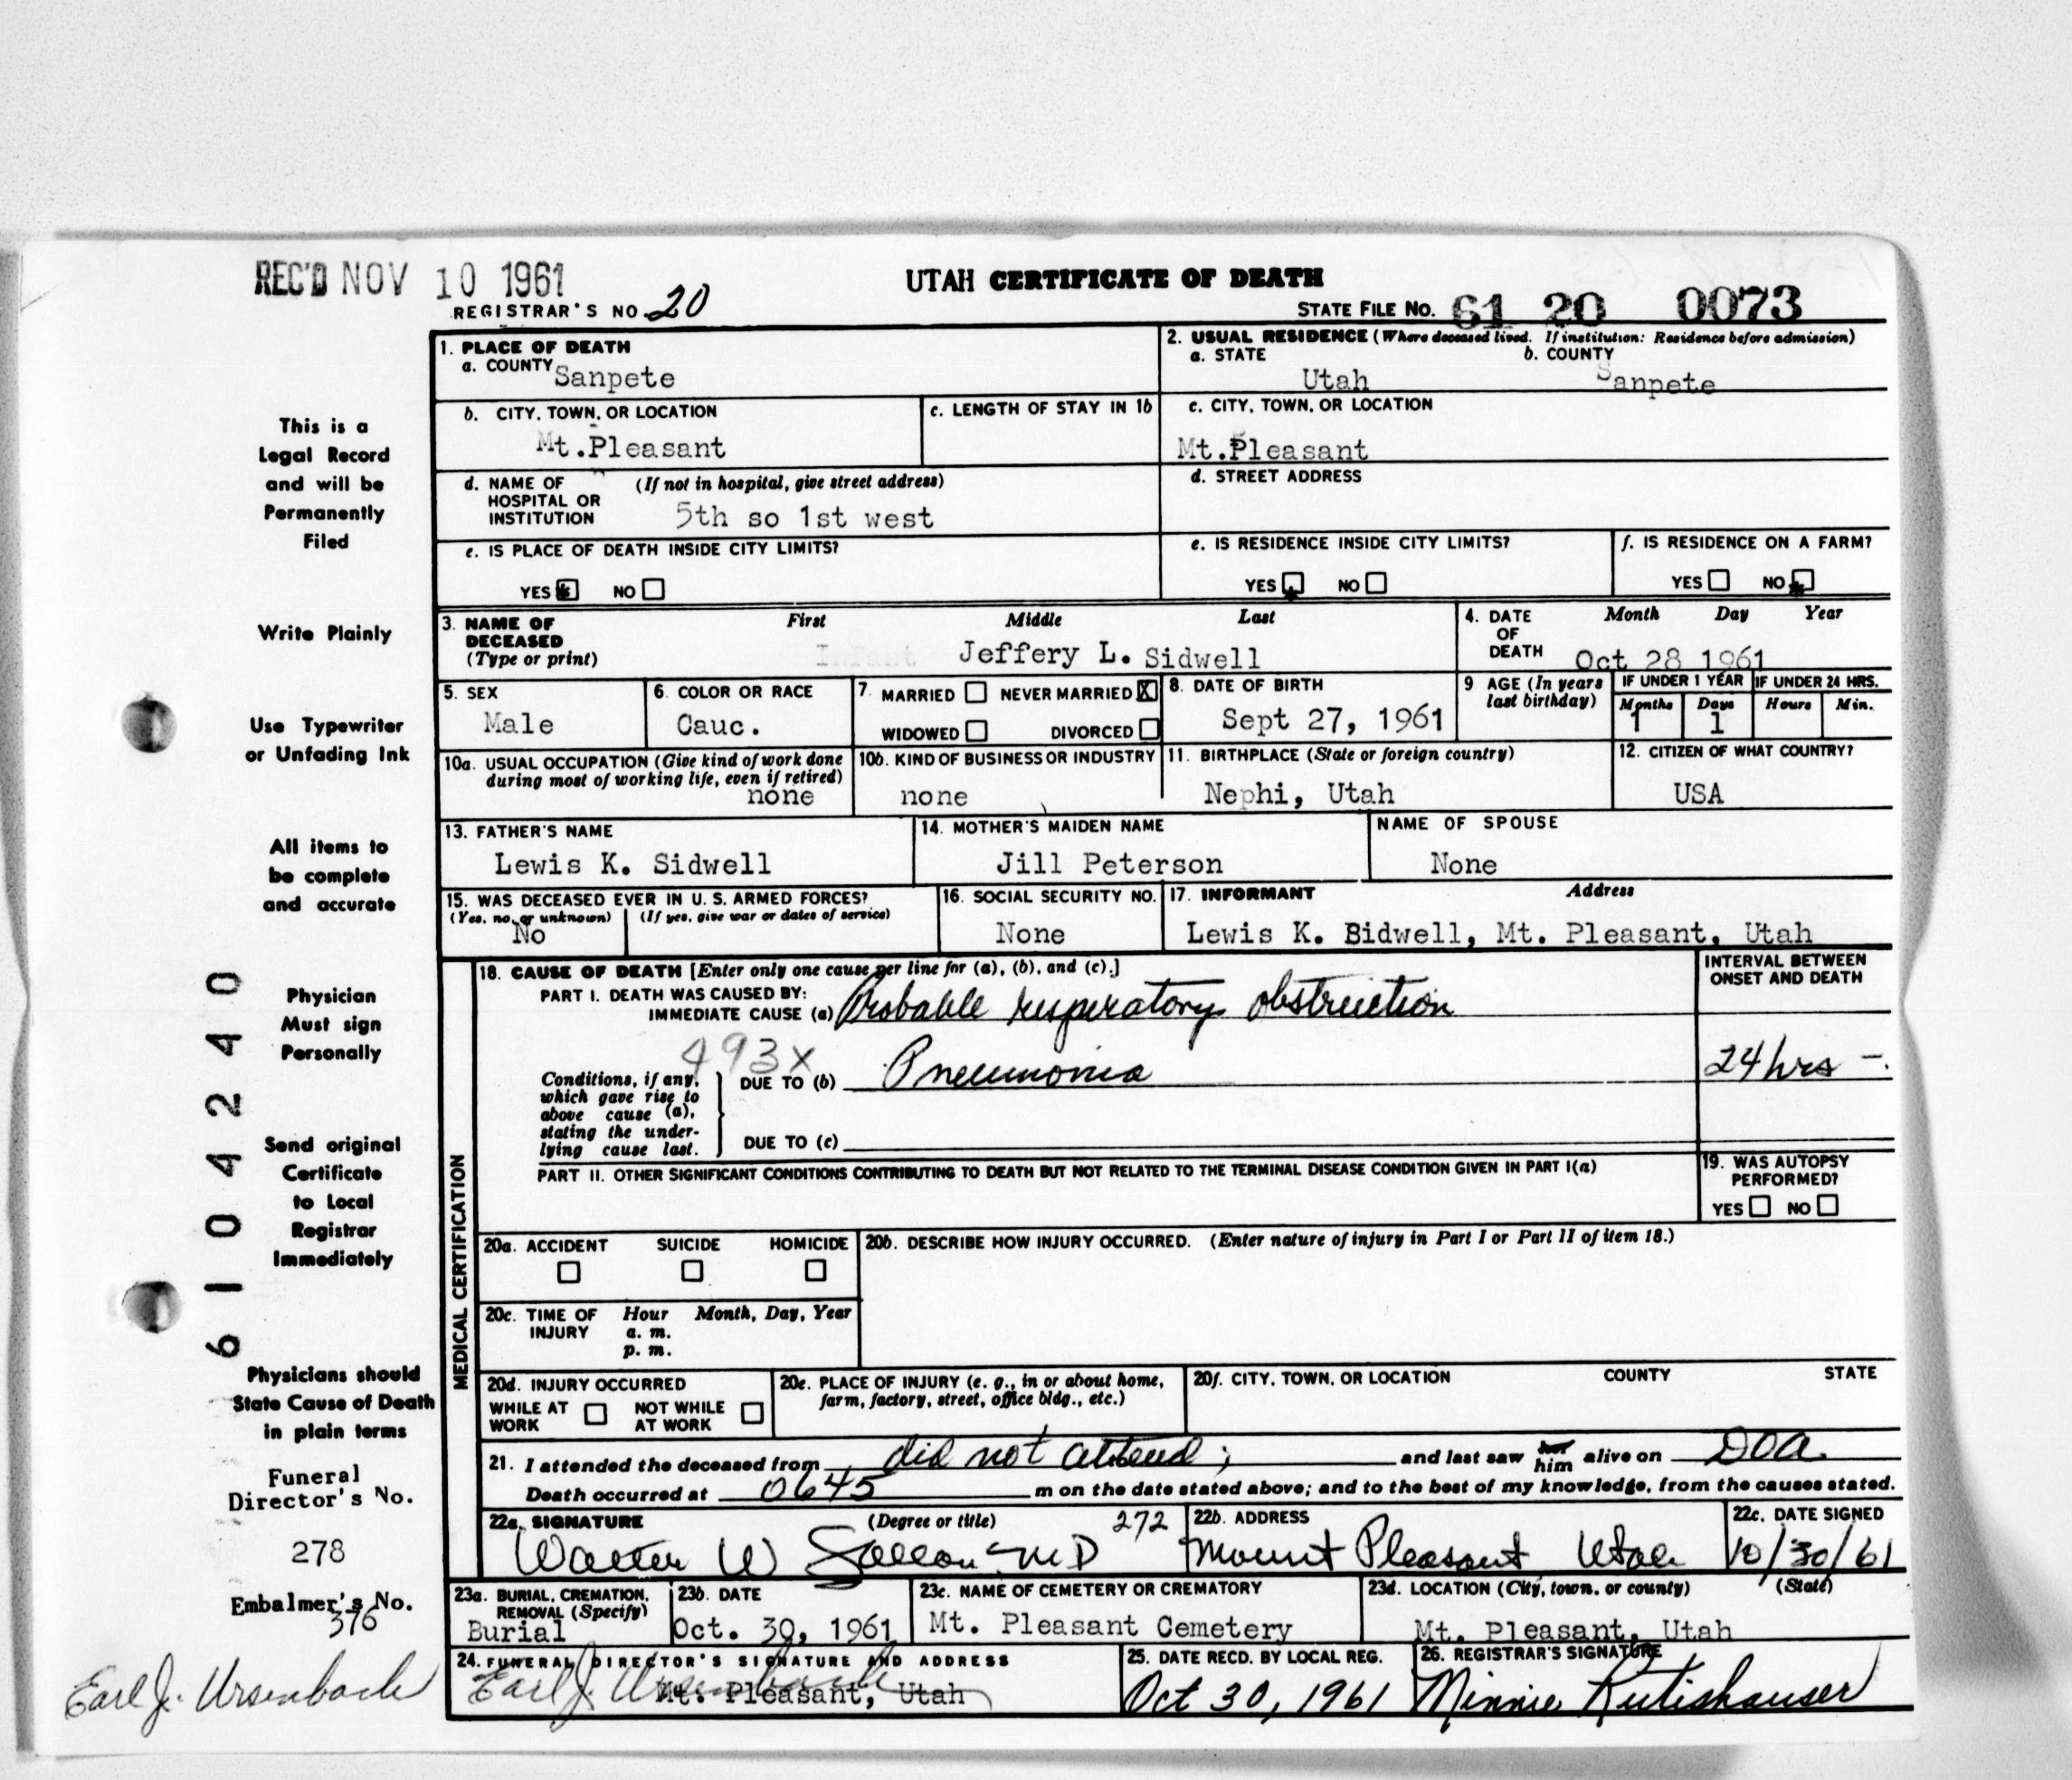 REC'D NOV 10 1961
UTAH CERTIFICATE OF DEATH
REGISTRAR'S NO. 20
STATE FILE NO. 61 20 0073
1. PLACE OF DEATH
a. COUNTY Sanpete
2. USUAL RESIDENCE (Where deceased lived. If institution: Residence before admission)
a. STATE Utah b. COUNTY Sanpete
b. CITY, TOWN, OR LOCATION Mt.Pleasant
c. LENGTH OF STAY IN 1b
c. CITY, TOWN, OR LOCATION Mt.Pleasant
d. NAME OF HOSPITAL OR INSTITUTION (If not in hospital, give street address) 5th so 1st west
d. STREET ADDRESS
e. IS PLACE OF DEATH INSIDE CITY LIMITS?
YES NO
e. IS RESIDENCE INSIDE CITY LIMITS?
YES NO
f. IS RESIDENCE ON A FARM?
YES NO
3. NAME OF DECEASED (Type or print) First Middle Last
Infant Jeffery L. Sidwell
4. DATE OF DEATH Month Day Year
Oct 28 1961
5. SEX Male
6. COLOR OR RACE Cauc.
7. MARRIED NEVER MARRIED X
WIDOWED DIVORCED
8. DATE OF BIRTH Sept 27, 1961
9 AGE (In years last birthday)
IF UNDER 1 YEAR Months 1 Days 1
IF UNDER 24 HRS. Hours Min.
10a. USUAL OCCUPATION (Give kind of work done during most of working life, even if retired) none
10b. KIND OF BUSINESS OR INDUSTRY none
11. BIRTHPLACE (State or foreign country) Nephi, Utah
12. CITIZEN OF WHAT COUNTRY? USA
13. FATHER'S NAME Lewis K. Sidwell
14. MOTHER'S MAIDEN NAME Jill Peterson
NAME OF SPOUSE None
15. WAS DECEASED EVER IN U. S. ARMED FORCES?
(Yes, no, or unknown) (If yes, give war or dates of service)
No
16. SOCIAL SECURITY NO. None
17. INFORMANT Address
Lewis K. Bidwell, Mt. Pleasant, Utah
MEDICAL CERTIFICATION
18. CAUSE OF DEATH [Enter only one cause per line for (a), (b), and (c).]
INTERVAL BETWEEN ONSET AND DEATH
PART I. DEATH WAS CAUSED BY:
IMMEDIATE CAUSE (a) Probable respiratory obstruction
493X
Conditions, if any, which gave rise to above cause (a), stating the underlying cause last.
DUE TO (b) Pneumonia 24 hrs -.
DUE TO (c)
PART II. OTHER SIGNIFICANT CONDITIONS CONTRIBUTING TO DEATH BUT NOT RELATED TO THE TERMINAL DISEASE CONDITION GIVEN IN PART I(a)
19. WAS AUTOPSY PERFORMED?
YES NO
20a. ACCIDENT SUICIDE HOMICIDE
20b. DESCRIBE HOW INJURY OCCURRED. (Enter nature of injury in Part I or Part II of item 18.)
20c. TIME OF INJURY Hour Month, Day, Year
a. m.
p. m.
20d. INJURY OCCURRED
WHILE AT WORK NOT WHILE AT WORK
20e. PLACE OF INJURY (e. g., in or about home, farm, factory, street, office bldg., etc.)
20f. CITY, TOWN, OR LOCATION COUNTY STATE
21. I attended the deceased from did not attend; and last saw her him alive on DOA.
Death occurred at 0645 m on the date stated above; and to the best of my knowledge, from the causes stated.
22a. SIGNATURE (Degree or title) 272
Walter W MD
22b. ADDRESS Mount Pleasant Utah
22c. DATE SIGNED 10/30/61
23a. BURIAL, CREMATION, REMOVAL (Specify) Burial
23b. DATE Oct. 30, 1961
23c. NAME OF CEMETERY OR CREMATORY Mt. Pleasant Cemetery
23d. LOCATION (City, town, or county) (State)
Mt. Pleasant, Utah
24. FUNERAL DIRECTOR'S SIGNATURE AND ADDRESS
Earl J. Ursenbach
Mt. Pleasant, Utah
25. DATE RECD. BY LOCAL REG. Oct 30, 1961
26. REGISTRAR'S SIGNATURE Minnie Rutishauser
This is a
Legal Record
and will be
Permanently
Filed
Write Plainly
Use Typewriter
or Unfading Ink
All items to
be complete
and accurate
Physician
Must sign
Personally
Send original
Certificate
to Local
Registrar
Immediately
Physicians should
State Cause of Death
in plain terms
Funeral
Director's No.
278
Embalmer's No.
376
Earl J. Ursenbach
6104240